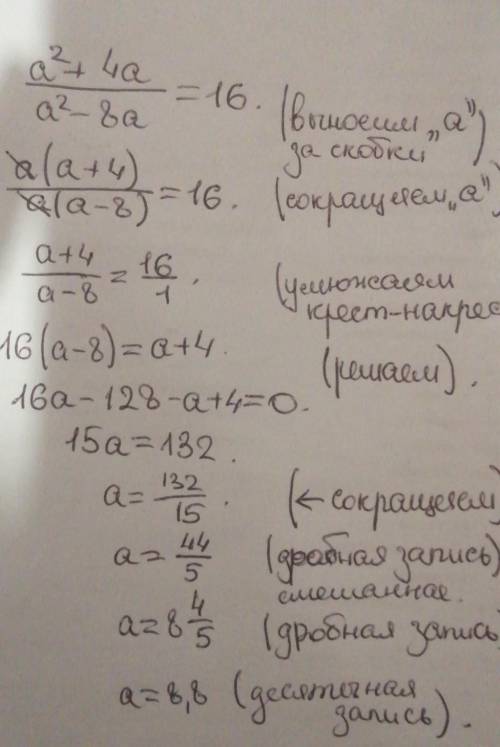 a² + 4a / a² - 8a = 16. (выносим „a” за скобки)
a(a+4) / a(a-8) = 16. (сокращаем „a”)
a+4 / a-8 = 16/1. (умножаем крест-накрес
16(a-8) = a+4. (решаем).
16a - 128 - a+4 = 0.
15a = 132.
a = 132/15. (← сокращаем)
a = 44/5 (дробная запись)
смешанная.
a = 8 4/5 (дробная запись
a = 8,8 (десятичная запись).